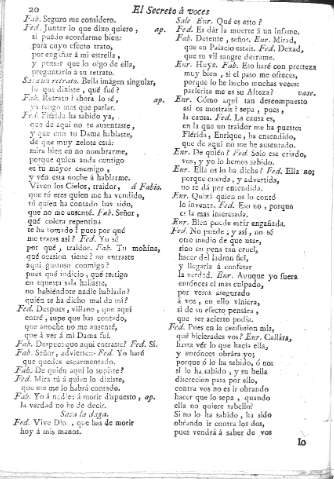 20
El Secreto á voces
Fab. Seguro me considero.
Fed. Juntar lo que dixo quiero, ap.
si puedo acordarme bien:
para cuyo efecto trato,
por engañar á mi estrella,
y pensar que lo oigo de ella,
preguntarlo á un retrato.
Saca un retrato. Bella imágen singular,
lo que dixiste, qué fué?
Fab. Retrato? ahora lo sé, ap.
ya tengo mas que parlar.
Fed. Flérida ha sabido ya,
que de aquí no te ausentaste,
y que con tu Dama hablaste,
de que muy zelosa está:
mira bien en no nombrarme,
porque quien anda contigo
es tu mayor enemigo,
y vén esta noche á hablarme.
Viven los Cielos, traidor, á Fabio.
que tú eres quien me ha vendido,
tú quien ha contado has sido,
que no me ausenté. Fab. Señor,
qué cólera repentina
te ha tomado? pues por qué
me tratas así? Fed. Yo sé
por qué, traidor. Fab. Tu mohina,
qué ocasion tiene? no entraste
aquí gustoso conmigo?
pues qué indicio, qué testigo
en aquesta sala hallaste,
no habiéndote nadie hablado?
quién te ha dicho mal de mí?
Fed. Despues, villano, que aquí
entré, supe que has contado,
que anoche no me ausenté,
que á ver á mi Dama fuí.
Fab. Despues que aquí entraste? Fed. Sí.
Fab. Señor, advierte:- Fed. Yo haré
que quedes escarmentado.
Fab. De quién aquí lo supiste?
Fed. Mira tú á quien lo dixiste,
que ese me lo habrá contado.
Fab. Yo á nadie: á morir dispuesto, ap.
la verdad no he de decir.
Saca la daga.
Fed. Vive Dios, que has de morir
hoy á mis manos.
Sale Enr. Qué es esto?
Fed. Es dar la muerte á un infame.
Fab. Detente, señor. Enr. Mirad,
que en Palacio estais. Fed. Dexad,
que su vil sangre derrame.
Enr. Huye. Fab. Eso haré con presteza
muy bien, si el paso me ofreces,
porque lo he hecho muchas veces:
parlerías me es su Alteza? vase.
Enr. Cómo aquí tan descompuesto
así os mostrais? sepa, pues,
la causa. Fed. La causa es,
en la que un traidor me ha puesto:
Flérida, Enrique, ha entendido,
que de aquí no me he ausentado.
Enr. De quién? Fed. Solo ese criado,
vos, y yo lo hemos sabido.
Enr. Ella os lo ha dicho? Fed. Ella no;
porque cuerda, y advertida,
no se da por entendida.
Enr. Quizá quien os lo contó
lo inventa. Fed. Eso no, porque
es la mas interesada.
Enr. Bien puede estar engañada.
Fed. No puede; y así, no sé
otro medio de que usar,
sino en pena tan cruel,
hacer del ladron fiel,
y llegarla á confesar
la verdad. Enr. Aunque yo fuera
entónces el mas culpado,
por veros asegurado
á vos, en ello viniera,
si de su efecto pensára,
que ser acierto podia.
Fed. Pues en la confusion mia,
qué hicierades vos? Enr. Callára,
hasta vér lo que hacia ella,
y entónces obrára yo;
porque ó lo ha sabido, ó no:
si lo ha sabido, y su bella
discrecion pasa por ello,
contra vos no es ir obrando
hacer que lo sepa, quando
ella no quiere sabello?
Si no lo ha sabido, ha sido
obrando ir contra los dos,
pues vendrá á saber de vos
lo